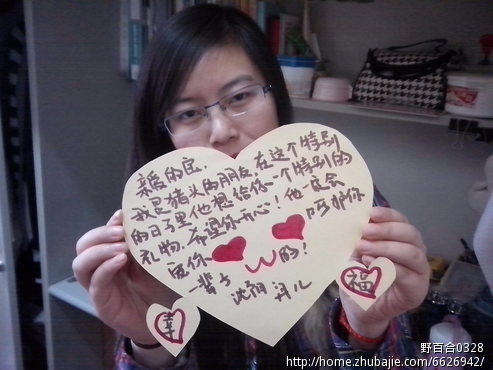 亲爱的宝.
我是猪头的朋友,在这个特别
的日子里他想给你一个特别的
礼物.希望你开心!他一定会
逗你 呵护你
一辈子 的!
沈阳 月儿
幸
福
野百合0328
http://home.zhubajie.com/6626942/